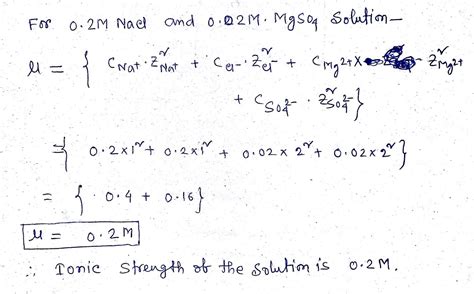 For 0.2M Nacl and 0.02M. MgSO4 Solution—
μ = { C Na+ . Z² Na+ + C Cl- . Z² Cl- + C Mg2+ X Z² Mg2+
+ C SO4 2- . Z² SO4 2- }
= { 0.2x1² + 0.2x1² + 0.02 x 2² + 0.02x2² }
= { 0.4 + 0.16 }
μ = 0.2M
∴ Ionic Strength of the Solution is 0.2M.